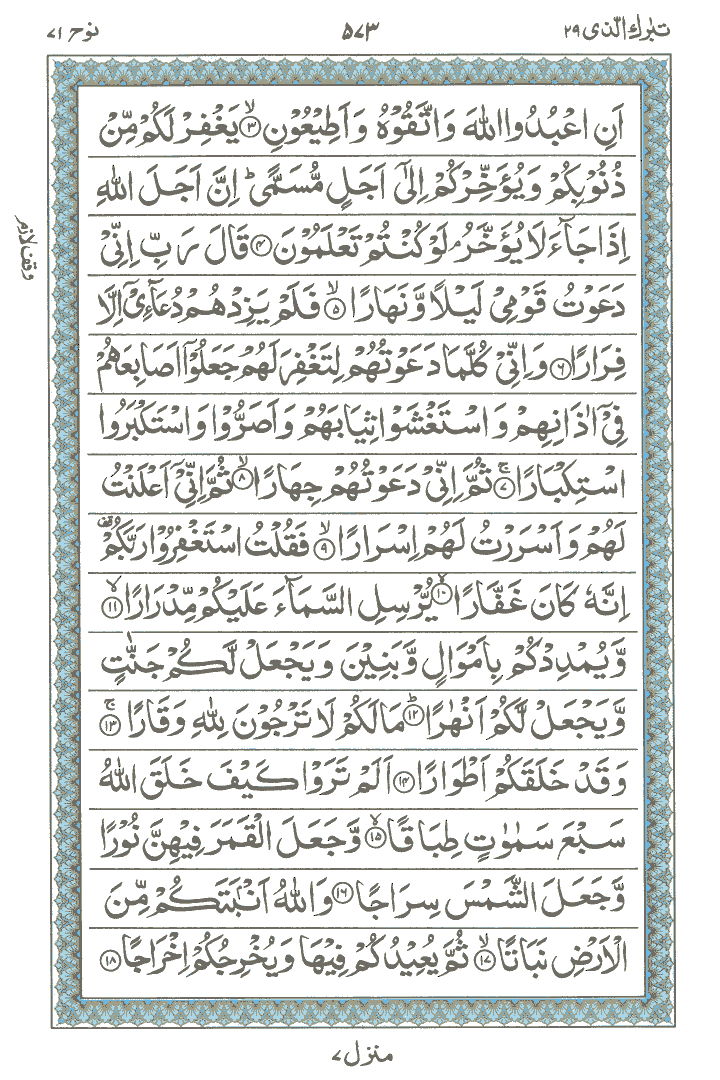 تبٰرك الّذى ٢٩
۵۷۳
نوح ۷۱
اَنِ اعْبُدُوا اللّٰهَ وَاتَّقُوْهُ وَاَطِيْعُوْنِ ۙ﴿۳﴾ يَغْفِرْ لَكُمْ مِّنْ
ذُنُوْبِكُمْ وَيُؤَخِّرْكُمْ اِلٰٓى اَجَلٍ مُّسَمًّى ؕ اِنَّ اَجَلَ اللّٰهِ
اِذَا جَآءَ لَا يُؤَخَّرُ ۘ لَوْ كُنْتُمْ تَعْلَمُوْنَ ﴿۴﴾ قَالَ رَبِّ اِنِّىْ
وقف لازم
دَعَوْتُ قَوْمِىْ لَيْلًا وَّنَهَارًا ۙ﴿۵﴾ فَلَمْ يَزِدْهُمْ دُعَآءِىْٓ اِلَّا
فِرَارًا ﴿۶﴾ وَاِنِّىْ كُلَّمَا دَعَوْتُهُمْ لِتَغْفِرَ لَهُمْ جَعَلُوْٓا اَصَابِعَهُمْ
فِىْٓ اٰذَانِهِمْ وَاسْتَغْشَوْا ثِيَابَهُمْ وَاَصَرُّوْا وَاسْتَكْبَرُوا
اسْتِكْبَارًا ۚ﴿۷﴾ ثُمَّ اِنِّىْ دَعَوْتُهُمْ جِهَارًا ۙ﴿۸﴾ ثُمَّ اِنِّىْٓ اَعْلَنْتُ
لَهُمْ وَاَسْرَرْتُ لَهُمْ اِسْرَارًا ۙ﴿۹﴾ فَقُلْتُ اسْتَغْفِرُوْا رَبَّكُمْ
اِنَّهٗ كَانَ غَفَّارًا ۙ﴿۱۰﴾ يُّرْسِلِ السَّمَآءَ عَلَيْكُمْ مِّدْرَارًا ۙ﴿۱۱﴾
وَّيُمْدِدْكُمْ بِاَمْوَالٍ وَّبَنِيْنَ وَيَجْعَلْ لَّكُمْ جَنّٰتٍ
وَّيَجْعَلْ لَّكُمْ اَنْهٰرًا ؕ﴿۱۲﴾ مَا لَكُمْ لَا تَرْجُوْنَ لِلّٰهِ وَقَارًا ۚ﴿۱۳﴾
وَقَدْ خَلَقَكُمْ اَطْوَارًا ﴿۱۴﴾ اَلَمْ تَرَوْا كَيْفَ خَلَقَ اللّٰهُ
سَبْعَ سَمٰوٰتٍ طِبَاقًا ۙ﴿۱۵﴾ وَّجَعَلَ الْقَمَرَ فِيْهِنَّ نُوْرًا
وَّجَعَلَ الشَّمْسَ سِرَاجًا ﴿۱۶﴾ وَاللّٰهُ اَنْۢبَتَكُمْ مِّنَ
الْاَرْضِ نَبَاتًا ۙ﴿۱۷﴾ ثُمَّ يُعِيْدُكُمْ فِيْهَا وَيُخْرِجُكُمْ اِخْرَاجًا ﴿۱۸﴾
منزل ۷